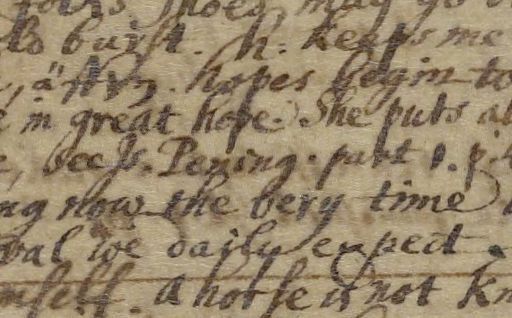 shoes may go
to burst. h: keeps me
hopes begin to
in great hope. She puts
see Js. Pening. part 1. p.
ng now the very time
val we daily expect
mself. A horse is not kn